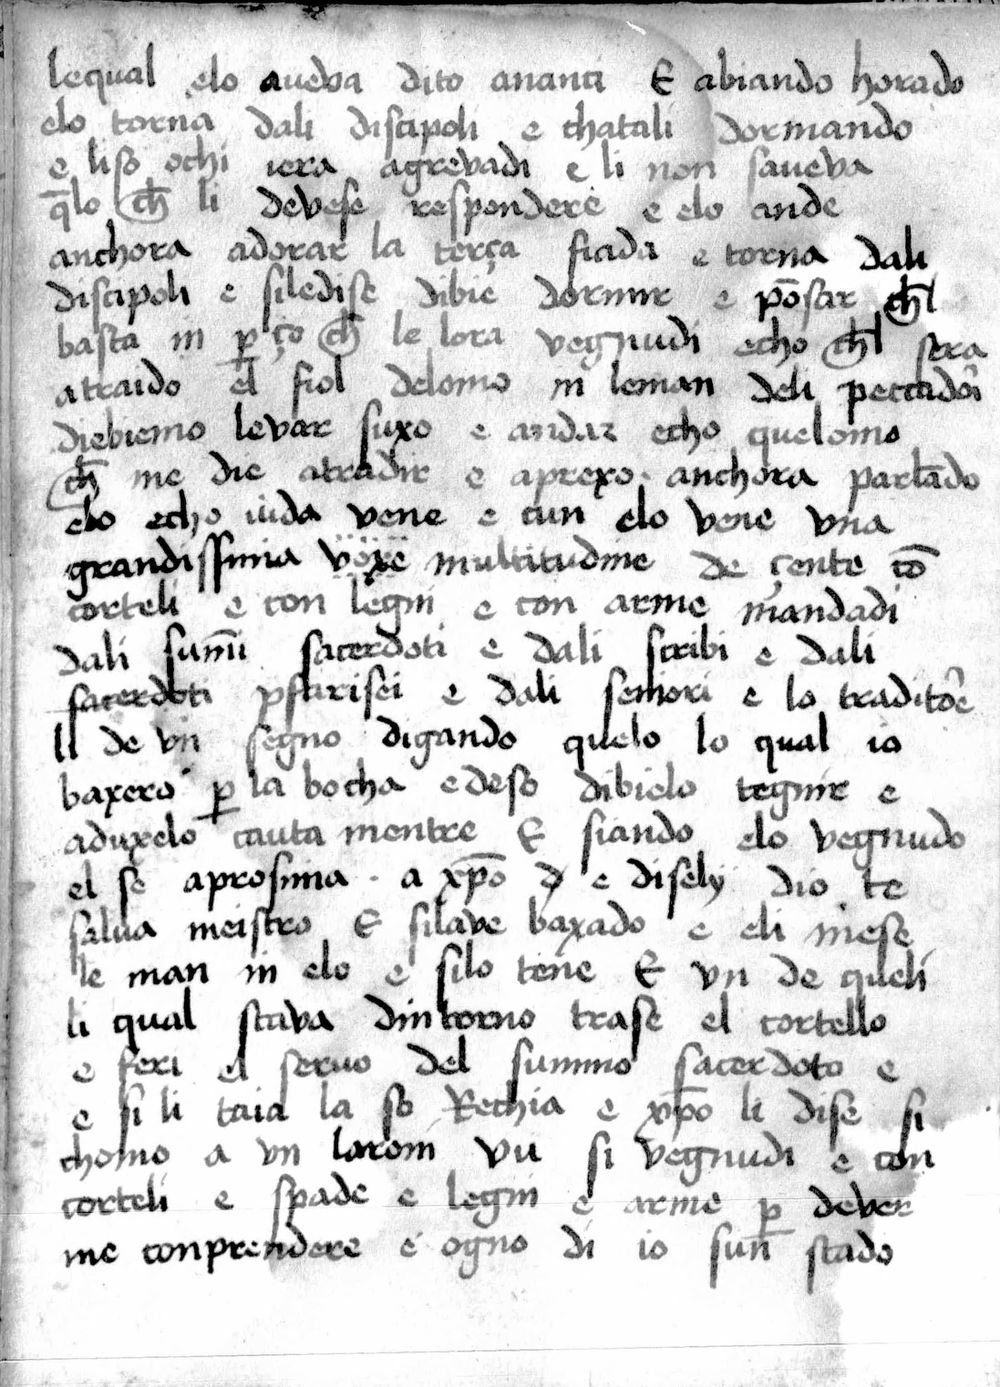 lequal elo aueva dito ananti E abiando horado
elo torna dali discipoli e chatali dormando
e li so ochi iera agrevadi e li non saueva
q̄lo ch̄ li devese respondere e elo ande
anchora adorar la terça fiada e torna dali
discipoli e siledise dibie dormir e pōsar ch̄l
basta in p̱ço ch̄ le lora vegnudi echo ch̄l sera
atraido el fiol delomo in leman deli peccadori
diebiemo levar suxo e andar echo quelomo
ch̄ me die atradir e aprexo. anchora parlādo
elo echo iuda vene e cun elo vene vna
grandissima voxe multitudine de çente cō
corteli e con legni e con arme mandadi
dali sum̄i sacerdoti e dali scribi e dali
sacerdoti pharisei e dali seniori e lo traditore
li de vn segno digando quelo lo qual io
baxero p̱ la bocha e deso dibielo tegnir e
aduxelo cauta mentre E siando elo vegnudo
el se aprosima. a xp̄o e disely dio te
salua meistro E silave baxado e eli mese
le man in elo e silo tene E vn de queli
li qual stava dintorno trase el cortello
e feri el seruo del summo sacerdoto e
e si li taia la so Rechia e xp̄o li dise si
chomo a vn laroni vu si vegnudi e con
corteli e spade e legni e arme p̱ dever
me conprendere e ogno di io sun̄ stado